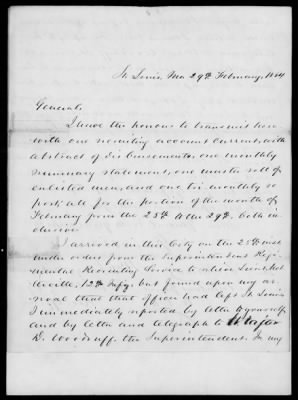 St. Louis, Mo 29th February, 1864
General:
I have the honour to transmit here
with one recruiting account current, with
abstract of disbursements, one monthly
summary statement, one muster roll of
enlisted men, and one tri monthly re
port, all for the portion of the month of
February from the 25th to the 29th both in
clusive.
I arrived in this City on the 25th inst
under orders from the Superintendent Regi
mental Recruiting Service to relieve Lieut.
12th Infy. but found upon my ar
rival that that officer had left St. Louis
I immediately reported by letter to yourself,
and by letter and telegraph to Major
D. Woodruff, the Superintendent. In my